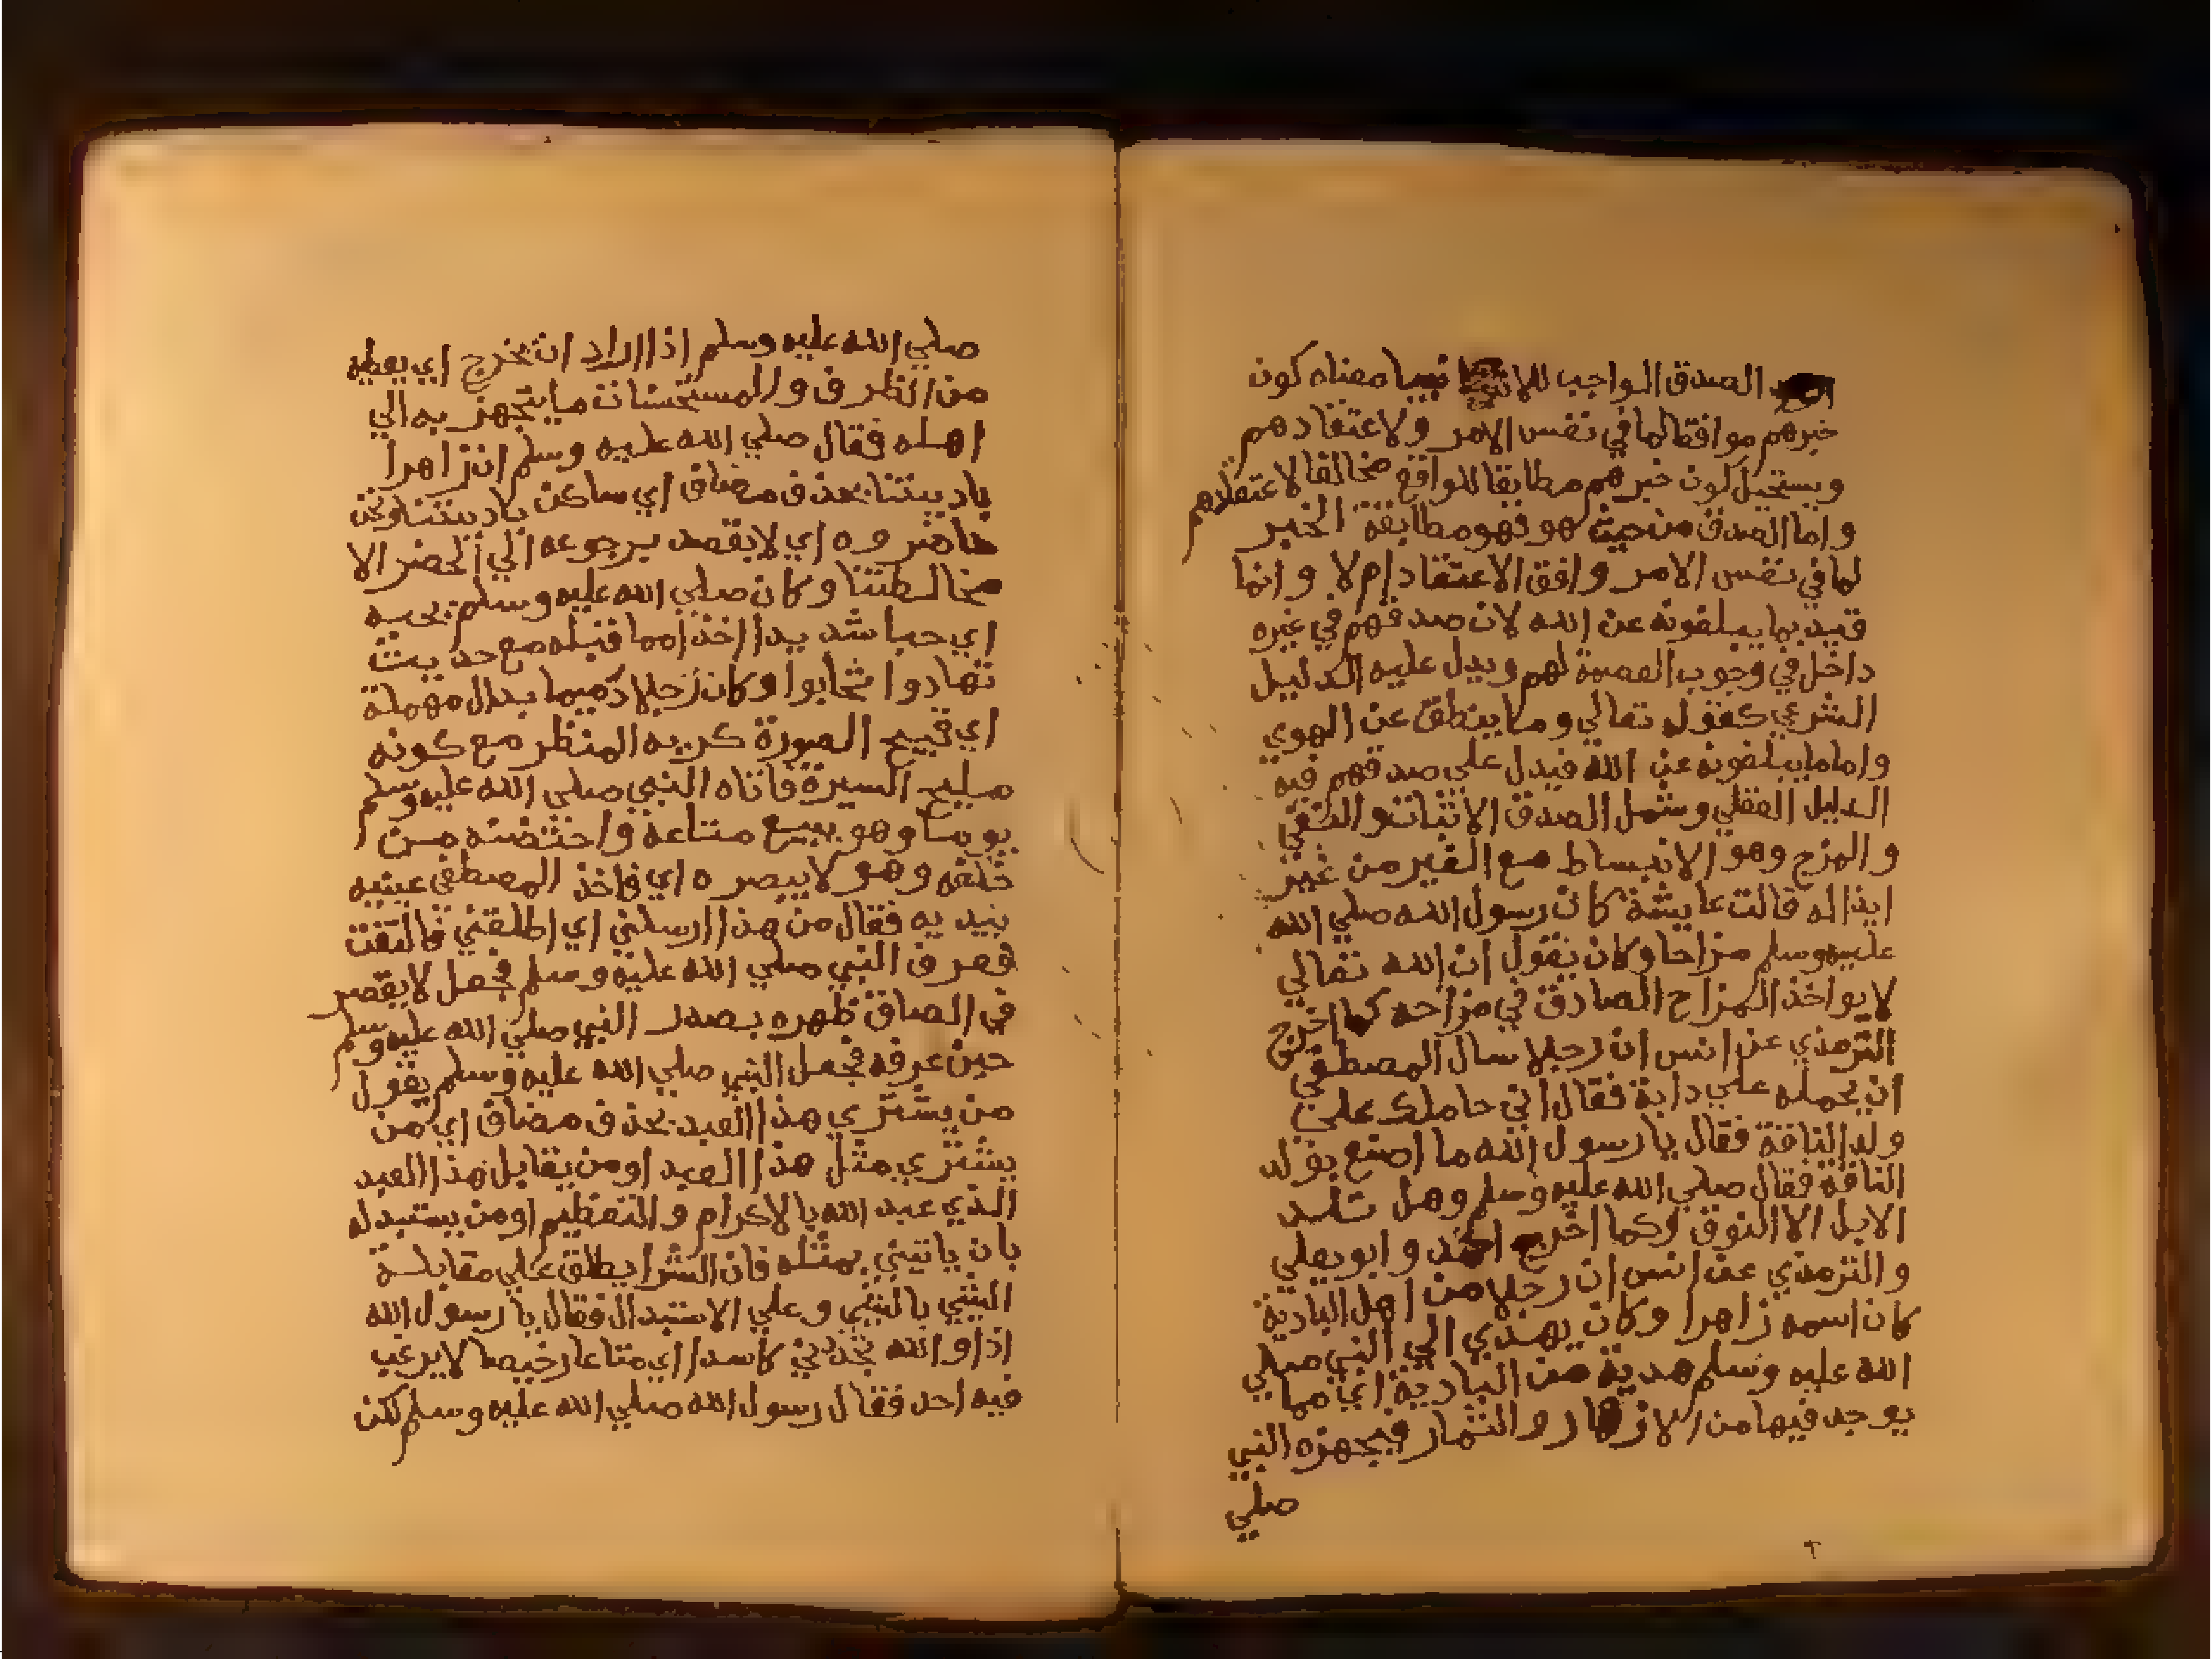 الصدق الواجب للانبيا معناه كون
خبرهم موافقا لما في نفس الامر ولاعتقادهم
ويستحيل كون خبرهم مطابقا للواقع مخالفا لاعتقادهم
واما الصدق من حيث هو فهو مطابقة الخبر
لما في نفس الامر وافق الاعتقاد ام لا وانما
قيد بما يبلغونه عن الله لان صدقهم في غيره
داخل في وجوب العصمة لهم ويدل عليه الدليل
الشرعي كقوله تعالي وما ينطق عن الهوي
واما ما يبلغونه عن الله فيدل علي صدقهم فيه
الدليل العقلي وشمل الصدق الاثبات والنفي
والمزح وهو الانبساط مع الغير من غير
ايذا له قالت عايشة كان رسول الله صلي الله
عليه وسلم مزاحا وكان يقول ان الله تعالي
لا يواخذ المزاح الصادق في مزاحه كما اخرج
الترمذي عن انس ان رجلا سال المصطفي
ان يحمله علي دابة فقال اني حاملك علي
ولد الناقة فقال يا رسول الله ما اصنع بولد
الناقة فقال صلي الله عليه وسلم وهل تلد
الابل الا النوق وكما اخرج احمد وابو يعلي
والترمذي عن انس ان رجلا من اهل البادية
كان اسمه زاهرا وكان يهدي الي النبي صلي
الله عليه وسلم هدية من البادية اي مما
يوجد فيها من الازهار والثمار فيجهزه النبي
صلي
صلي الله عليه وسلم اذا اراد ان يخرج اي يعطيه
من الظرف والمستحسنات ما يتجهز به الي
اهله فقال صلي الله عليه وسلم ان زاهرا
باديتنا بحذف مضاف اي ساكن باديتنا ونحن
حاضروه اي لا يقصد برجوعه الي الحضر الا
مخالطتنا وكان صلي الله عليه وسلم يحبه
اي حبا شديدا اخذا مما قبله مع حديث
تهادوا تحابوا وكان رجلا دميما بدال مهملة
اي قبيح الصورة كريه المنظر مع كونه
مليح السيرة فاتاه النبي صلي الله عليه وسلم
يوما وهو يبيع متاعه واحتضنه من
خلفه وهو لا يبصره اي فاخذ المصطفي عينيه
بيديه فقال من هذا ارسلني اي اطلقني فالتفت
فعرف النبي صلي الله عليه وسلم فجعل لا يقصر
في الصاق ظهره بصدر النبي صلي الله عليه وسلم
حين عرفه فجعل النبي صلي الله عليه وسلم يقول
من يشتري هذا العبد بحذف مضاف اي من
يشتري مثل هذا العبد او من يقابل هذا العبد
الذي عبد الله بالاكرام والتعظيم او من يستبدله
بان ياتيني بمثله فان الشرا يطلق علي مقابلة
الشي بالشي وعلي الاستبدال فقال يا رسول الله
اذا والله تجدني كاسدا اي متاعا رخيصا لا يرغب
فيه احد فقال رسول الله صلي الله عليه وسلم لكن